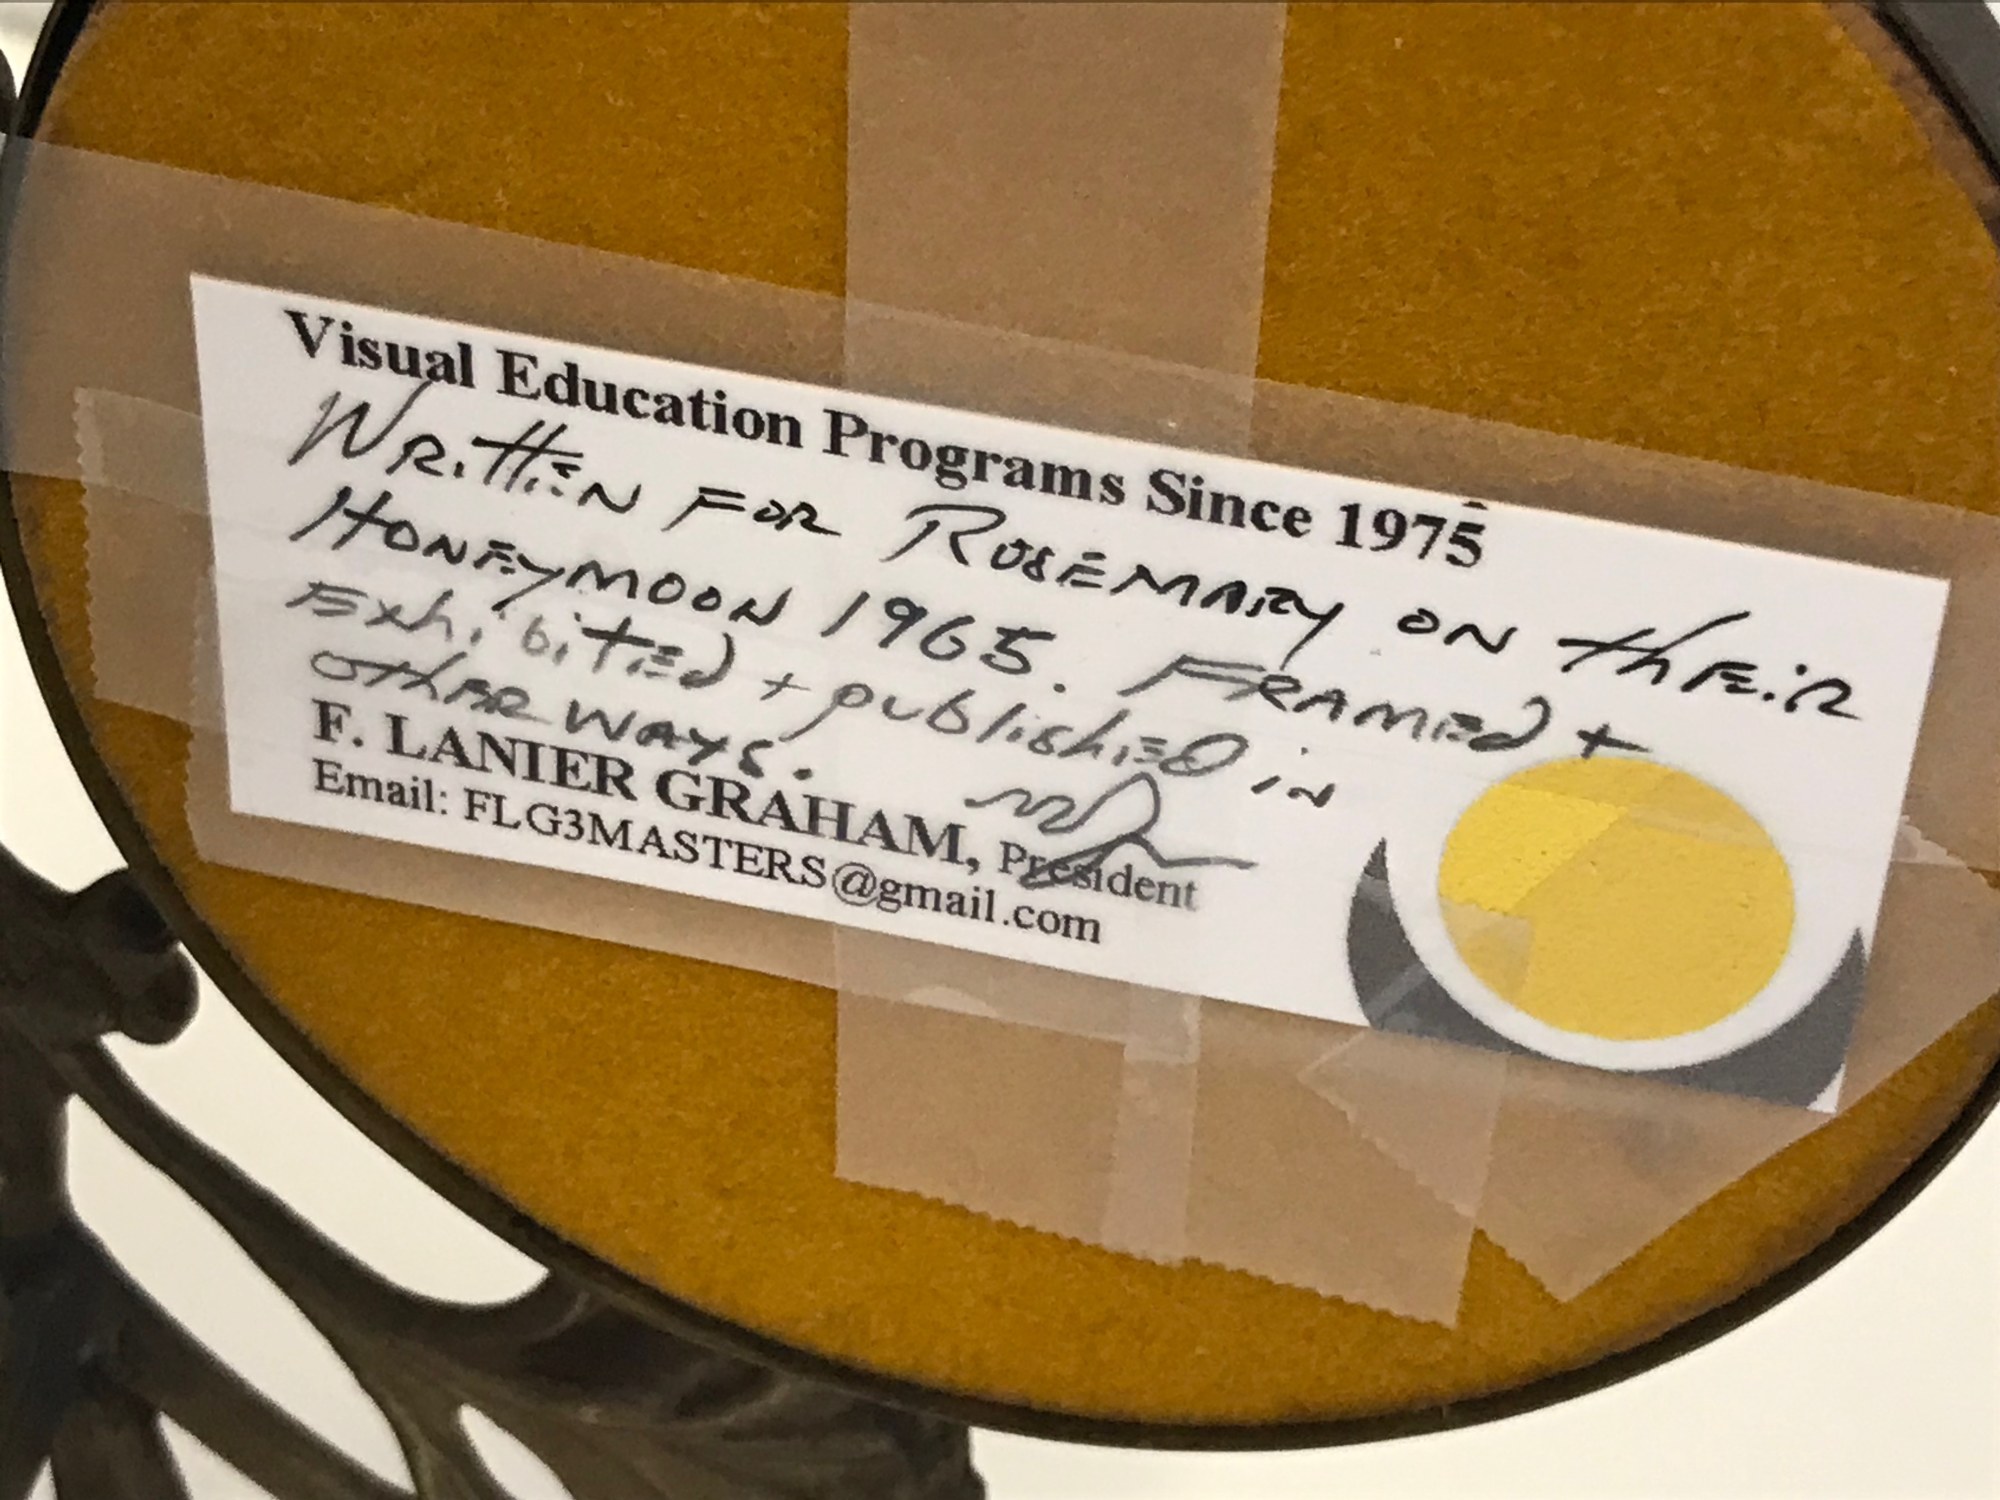 Visual Education Programs Since 1975
Written for Rosemary on their
Honeymoon 1965. Framed +
Exhibited + published in
other ways.
F. LANIER GRAHAM, President
Email: FLG3MASTERS@gmail.com